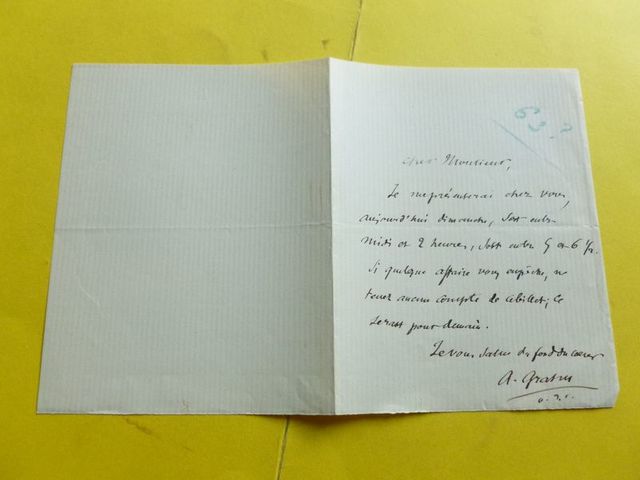 63 ?
Cher Monsieur,
Je me présenterai chez vous,
aujourd'hui dimanche, soit entre
midi et 2 heures, soit entre 5 et 6 h.
Si quelque affaire vous empêche, ne
tenez aucun compte de ce billet ; ce
serait pour demain.
Je vous salue du fond du coeur
A. Gratry